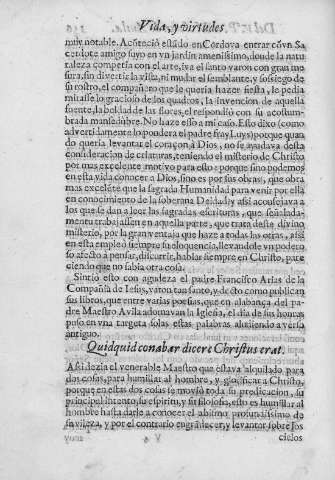 Vida, y virtudes
muy notable. Acõteció estãdo en Cordova entrar cõ vn Sa
cerdote amigo suyo en vn jardin amenissimo, donde la natu
raleza competia con el arte, iva el santo varon con gran me
sura, sin divertir la vista, ni mudar el semblante, y sossiego de
su rostro, el compañero que le queria hazer fiesta, le pedia
mirasse lo gracioso de los quadros, la invencion de aquella
fuente, la beldad de las flores, el respondió con su acostum-
brada mansedũbre. No haze esso a mi caso. Esto dixo (como
advertidamente lo pondera el padre fray Luys) porque quan
do queria levantar el coraçon à Dios, no se ayudava desta
consideracion de criaturas, teniendo el misterio de Christo
por mas excelente motivo para esto: porque sino podemos
en esta vida conocer a Dios, sino es por sus obras, que obra
mas excelẽte que la sagrada Humanidad para venir por ella
en conocimiento de la soberana Deidad: y assi aconsejava a
los que se dan a leer las sagradas escrituras, que señalada-
mente trabajassen en aquella parte, que trata deste divino
misterio, por la gran ventaja que haze a todas las otras, assi
en esta empleó siempre su eloquencia, llevandole vn podero
so afecto à pensar, discurrir, hablar siempre en Christo, pare
ciendo que no sabia otra cosa.
Sintio esto con agudeza el padre Francisco Arias de la
Compañia de Iesus, varon tan santo, y docto como publican
sus libros, que entre varias poesias, que en alabança del Pa-
dre Maestro Avila adornavan la Iglesia, el dia de sus honras
puso en vna targeta solas estas palabras aludiendo a verso
antiguo.
Quidquid conabar dicere Christus erat.
Assi dezia el venerable Maestro que estava alquilado para
dos cosas, para humillar al hombre, y glorificar a Christo,
porque en estas dos cosas se movió toda su predicacion, su
principal intento, su espiritu, y su filosofia, esto es humillar al
hombre hasta darle a conocer el abismo profundissimo de
su vileza, y por el contrario engrãdecer, y levantar sobre los
cielos